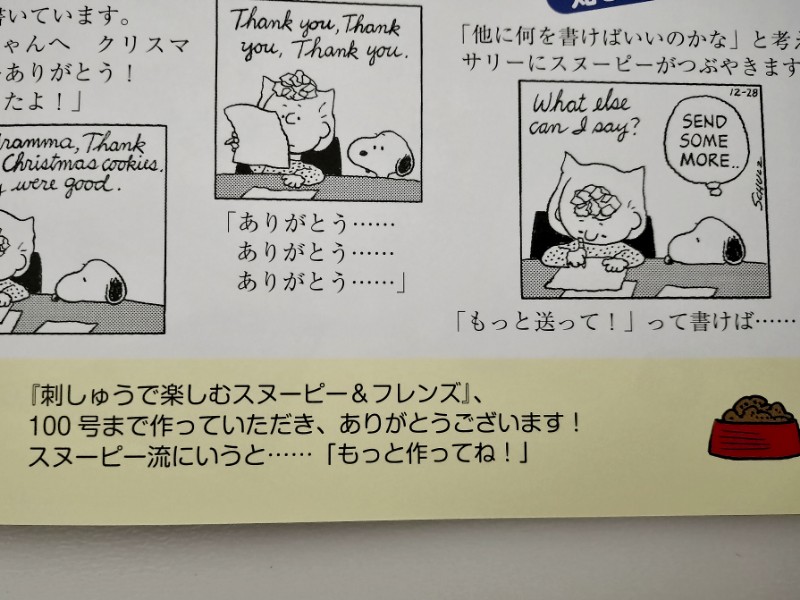 書いています。
ちゃんへ　クリスマ
ありがとう！
たよ！」
Gramma, Thank
Christmas cookies.
were good.
Thank you, Thank
you, Thank you.
「ありがとう……
ありがとう……
ありがとう……」
「他に何を書けばいいのかな」と考え
サリーにスヌーピーがつぶやきます
12-28
What else
can I say?
SEND
SOME
MORE..
SCHULZ
「もっと送って！」って書けば……
『刺しゅうで楽しむスヌーピー＆フレンズ』、
100号まで作っていただき、ありがとうございます！
スヌーピー流にいうと……「もっと作ってね！」